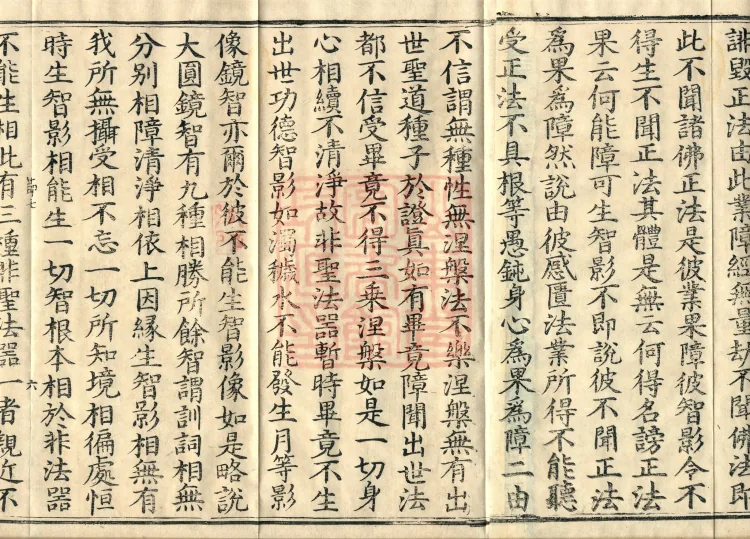 誹毀正法由此業障經無量劫不聞佛法即
此不聞諸佛正法是彼業果障彼智影令不
得生不聞正法其體是無云何得名謗正法
果云何能障可生智影不即說彼不聞正法
爲果爲障然說由彼感匱法業所得不能聽
受正法不具根等愚鈍身心爲果爲障二由
不信謂無種性無涅槃法不樂涅槃無有出
世聖道種子於證眞如有畢竟障聞出世法
都不信受畢竟不得三乘涅槃如是一切身
心相續不清淨故非聖法器暫時畢竟不生
出世功德智影如濁穢水不能發生月等影
像鏡智亦爾於彼不能生智影像如是略說
大圓鏡智有九種相勝所餘智謂訓詞相無
分别相障清淨相依上因緣生智影相無有
我所無攝受相不忘一切所知境相徧處恒
時生智影相能生一切智根本相於非法器
不能生相此有三種非聖法器一者親近不
六